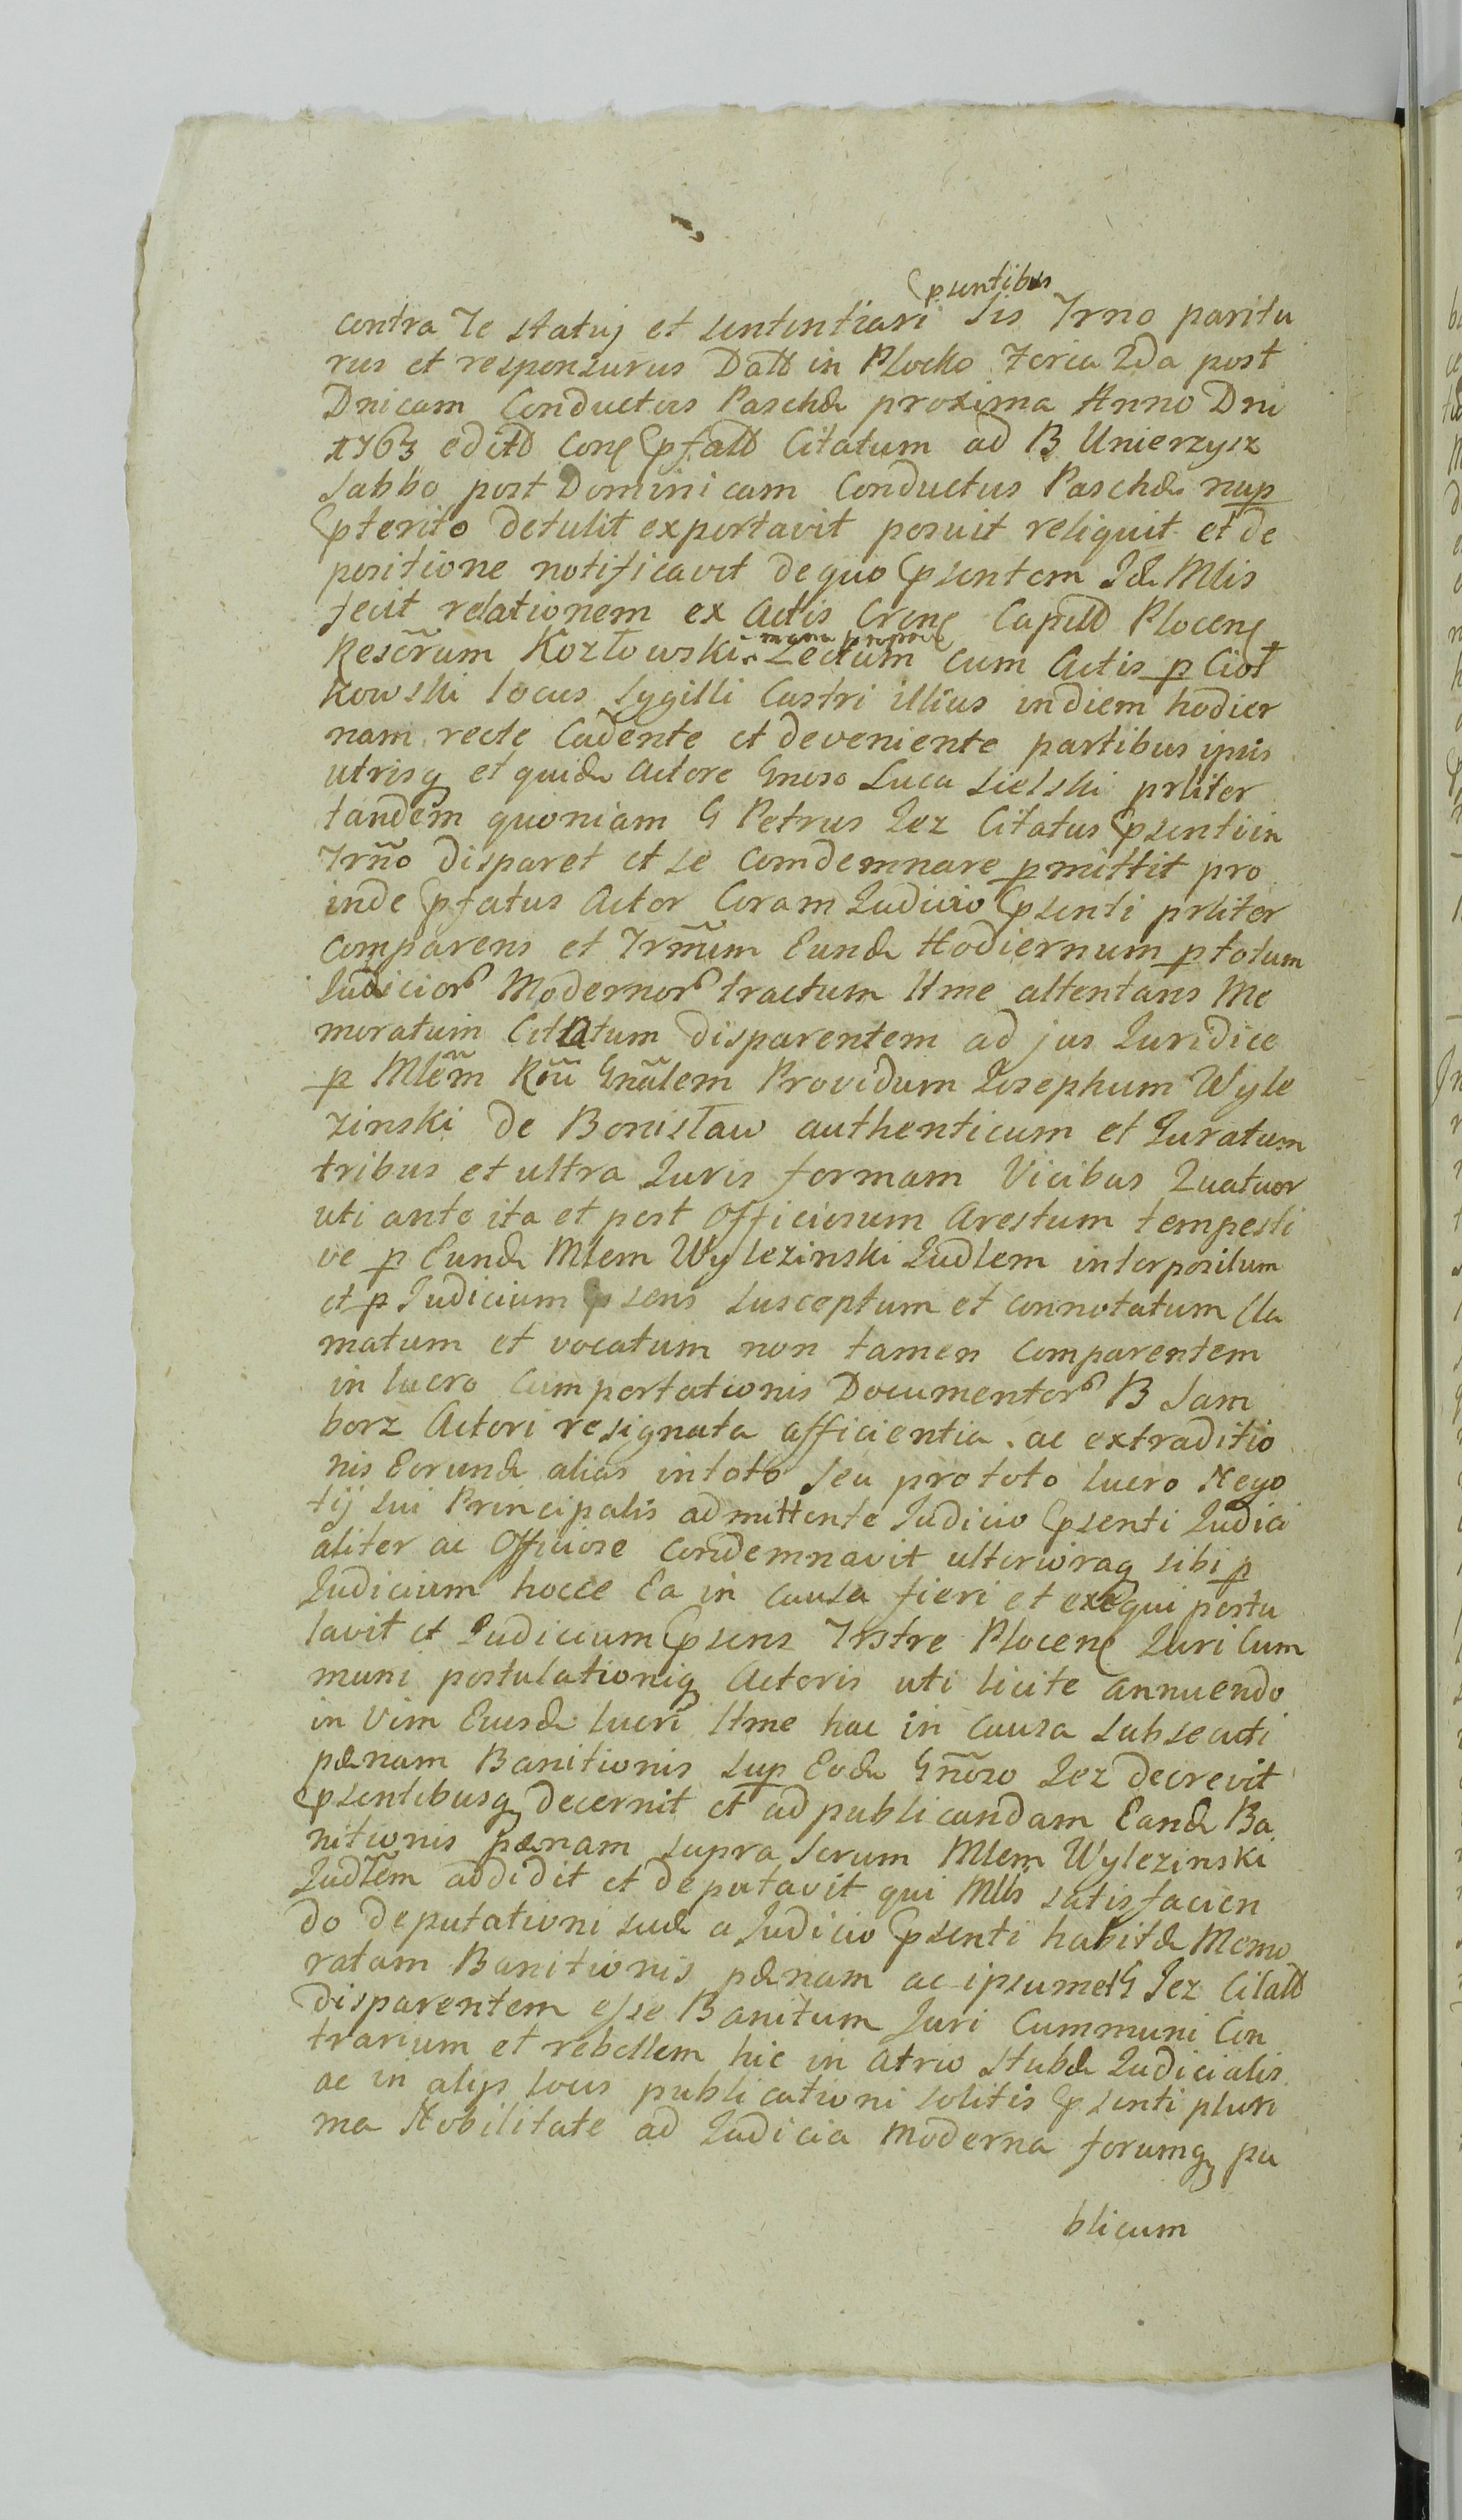 psentibus
contra Te statuj et sententiari Sis Trno paritu
rus et responsurus Datt in Plocko Feria 2da post
Dnicam Conductus Paschæ proxima Anno Dni
1763 editt conc pfatt Citatum ad B Unierzysz
Sabbo post Dominicam Conductus Paschæ nup
pterito detulit exportavit posuit reliquit et de
positione notificavit de quo psentem Idæ Mlis
fecit relationem ex Actis Crens Capitt Plocens
manu propria
Rescrum Kozłowski Lectum cum Actis p Ciot
kowski locus Sygilli Castri illius in diem hodier
nam recte Cadente et deveniente partibus ipsis
utrisq et quidæ Actore Gnoso Luca Sielski prliter
tandem quoniam G Petrus Jez Citatus psenti in
Trño disparet et se comdemnare pmittit pro
inde pfatus Actor Coram Judicio psenti prliter
comparens et Trmum Eundæ Hodiernum p totum
Judicior Modernor tractum ltme attentans Me
moratum Citatum disparentem ad jus Juridice
p Mlem Rñu Gnãlem Providum Josephum Wyle
zinski de Bonisław authenticum et Juratum
tribus et ultra Juris formam Vicibus Quatuor
uti ante ita et post Officiosum Arestum tempesti
ve p Eundæ Mlem Wylezinski Judlem interpositum
et p Judicium psens susceptum et connotatum Cla
matum et vocatum non tamen comparentem
in lucro Comportationis Documentor B Sam
borz Actori resignata afficientia. ac extraditio
nis Eorundæ alias in toto seu pro toto lucro Nego
tij sui Principalis admittente Judicio psenti Judici
aliter ac Officiose condemnavit ulterioraq sibi p
Judicium hocce Ea in causa fieri et exequi postu
lavit et Judicium psens Trstre Plocens Juri Cum
muni postulationiq Actoris uti licite annuendo
in Vim Eiusdæ lucri ltme hac in causa subsecuti
pænam Banitionis sup Eodæ Gnõso Jez decrevit
psentibusq decernit et ad publicandam Eandæ Ba
nitionis pænam supra Scrum Mlem Wylezinski
Judlẽm addidit et deputavit qui Mlis satisfacien
do deputationi suæ a Judicio psenti habitæ Memo
ratam Banitionis pænam ac ipsumet G Jez Citatt
disparentem esse Banitum Juri Cummuni Con
trarium et rebellem hic in Atrio Stubæ Judicialis
ac in alijs locis publicationi solitis psenti pluri
ma Nobilitate ad Judicia moderna forumq pu
blicum